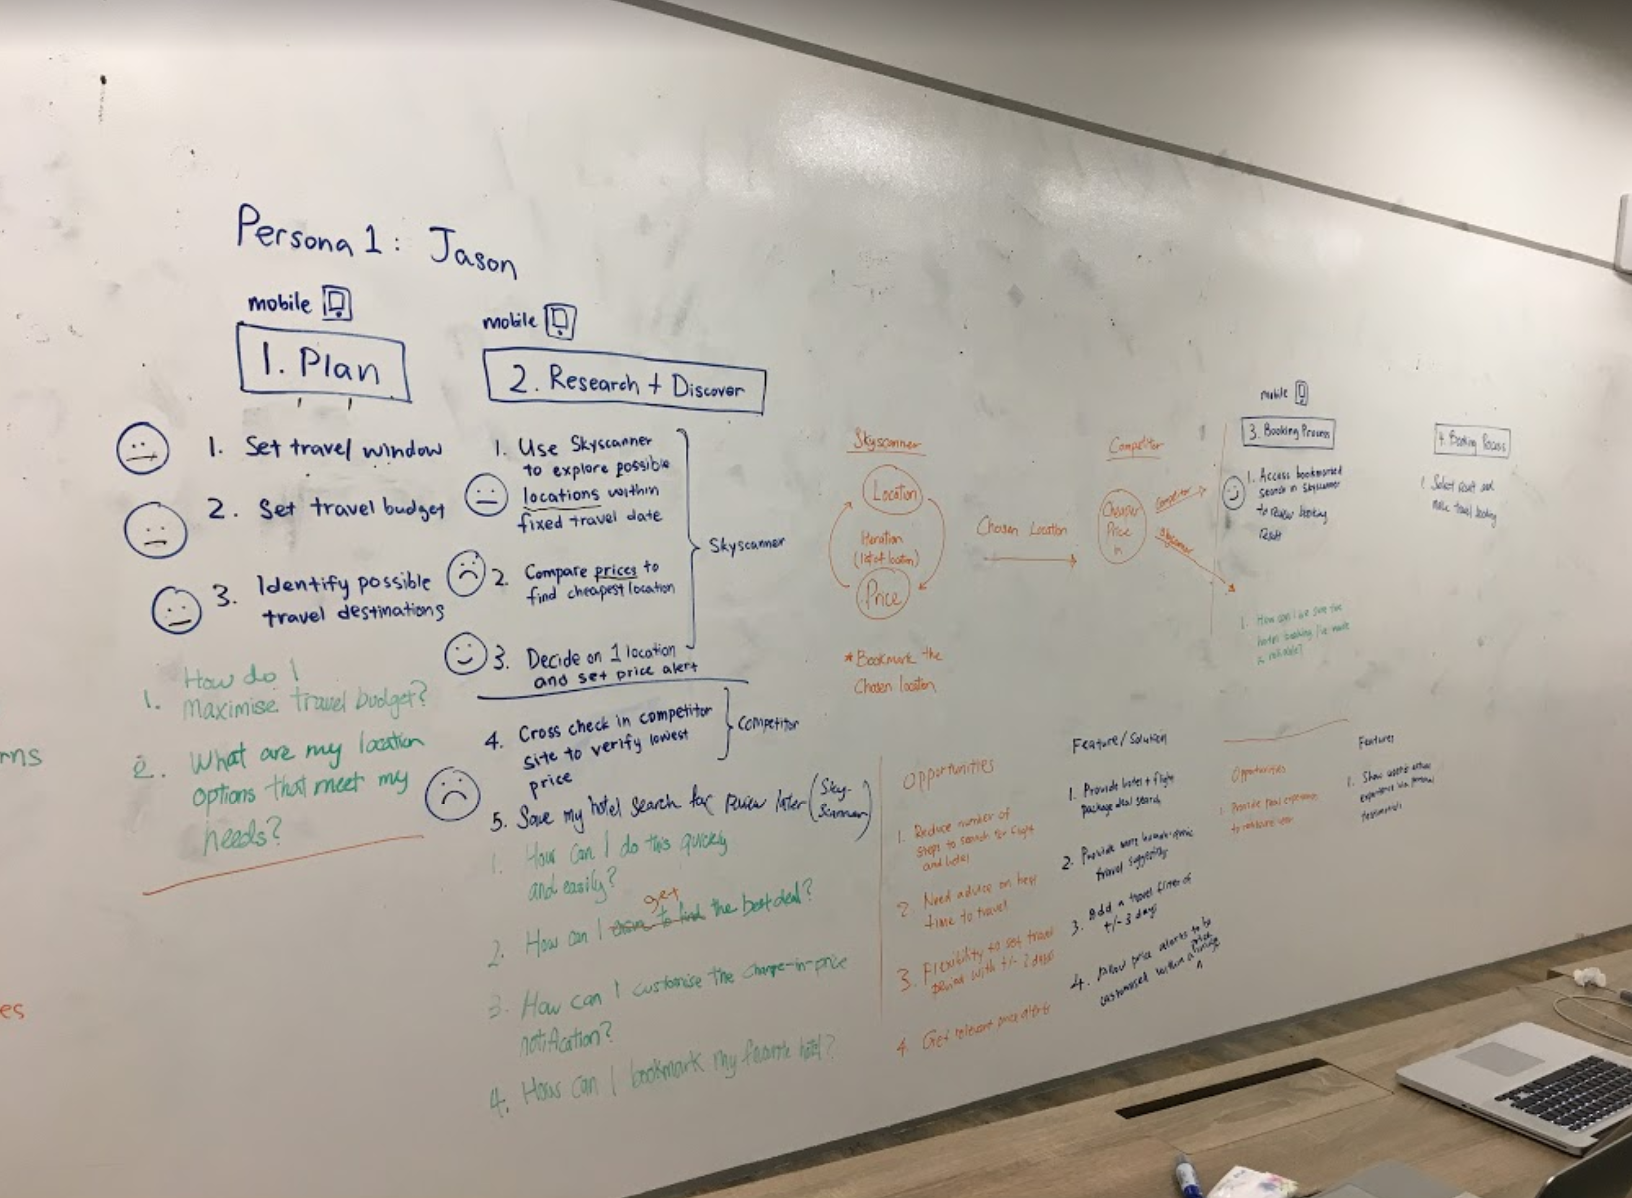 Persona 1: Jason
mobile
1. Plan
1. Set travel window
2. Set travel budget
3. Identify possible
travel destinations
How do I
1. Maximise travel budget?
2. What are my location
options that meet my
needs?
rns
es
mobile
2. Research + Discover
1. Use Skyscanner
to explore possible
locations within
fixed travel date
2. Compare prices to
find cheapest location
3. Decide on 1 location
and set price alert
Skyscanner
4. Cross check in competitor
site to verify lowest
price
Competitor
5. Save my hotel search for review later (Sky-
Scanner)
1. How can I do this quickly
and easily?
get
2. How can I to find the best deal?
3. How can I customise the change-in-price
notification?
4. How can I bookmark my favorite hotel?
Skyscanner
Location
Iteration
(list of location)
Price
* Bookmark the
Chosen location
Chosen Location
Competitor
Cheaper
Price
in
Competitor
Skyscanner
mobile
3. Booking Process
1. Access bookmarked
search in Skyscanner
to review booking
result
1. How can I be sure the
hotel booking I've made
is reliable?
4. Booking Process
1. Select result and
make travel booking
Opportunities
1. Reduce number of
steps to search for flight
and hotel
2. Need advice on best
time to travel
3. Flexibility to set travel
period with +/- 2 days
4. Get relevant price alerts
Feature/Solution
1. Provide hotel + flight
package deal search
2. Provide more
travel suggestion
3. Add a travel filter of
+/- 3 days
4. Allow price alerts to be
customised within a price
range
Opportunities
1. Provide real experiences
to reassure user
Features
1. Show
experience via personal
testimonials